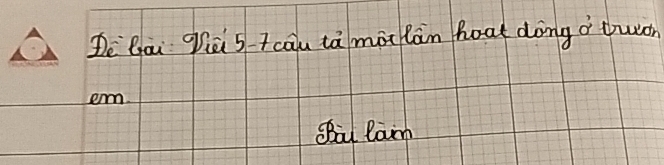 Đề bài: Viết 5-7 câu tả một lần hoạt động ở trường
em.
Bài làm